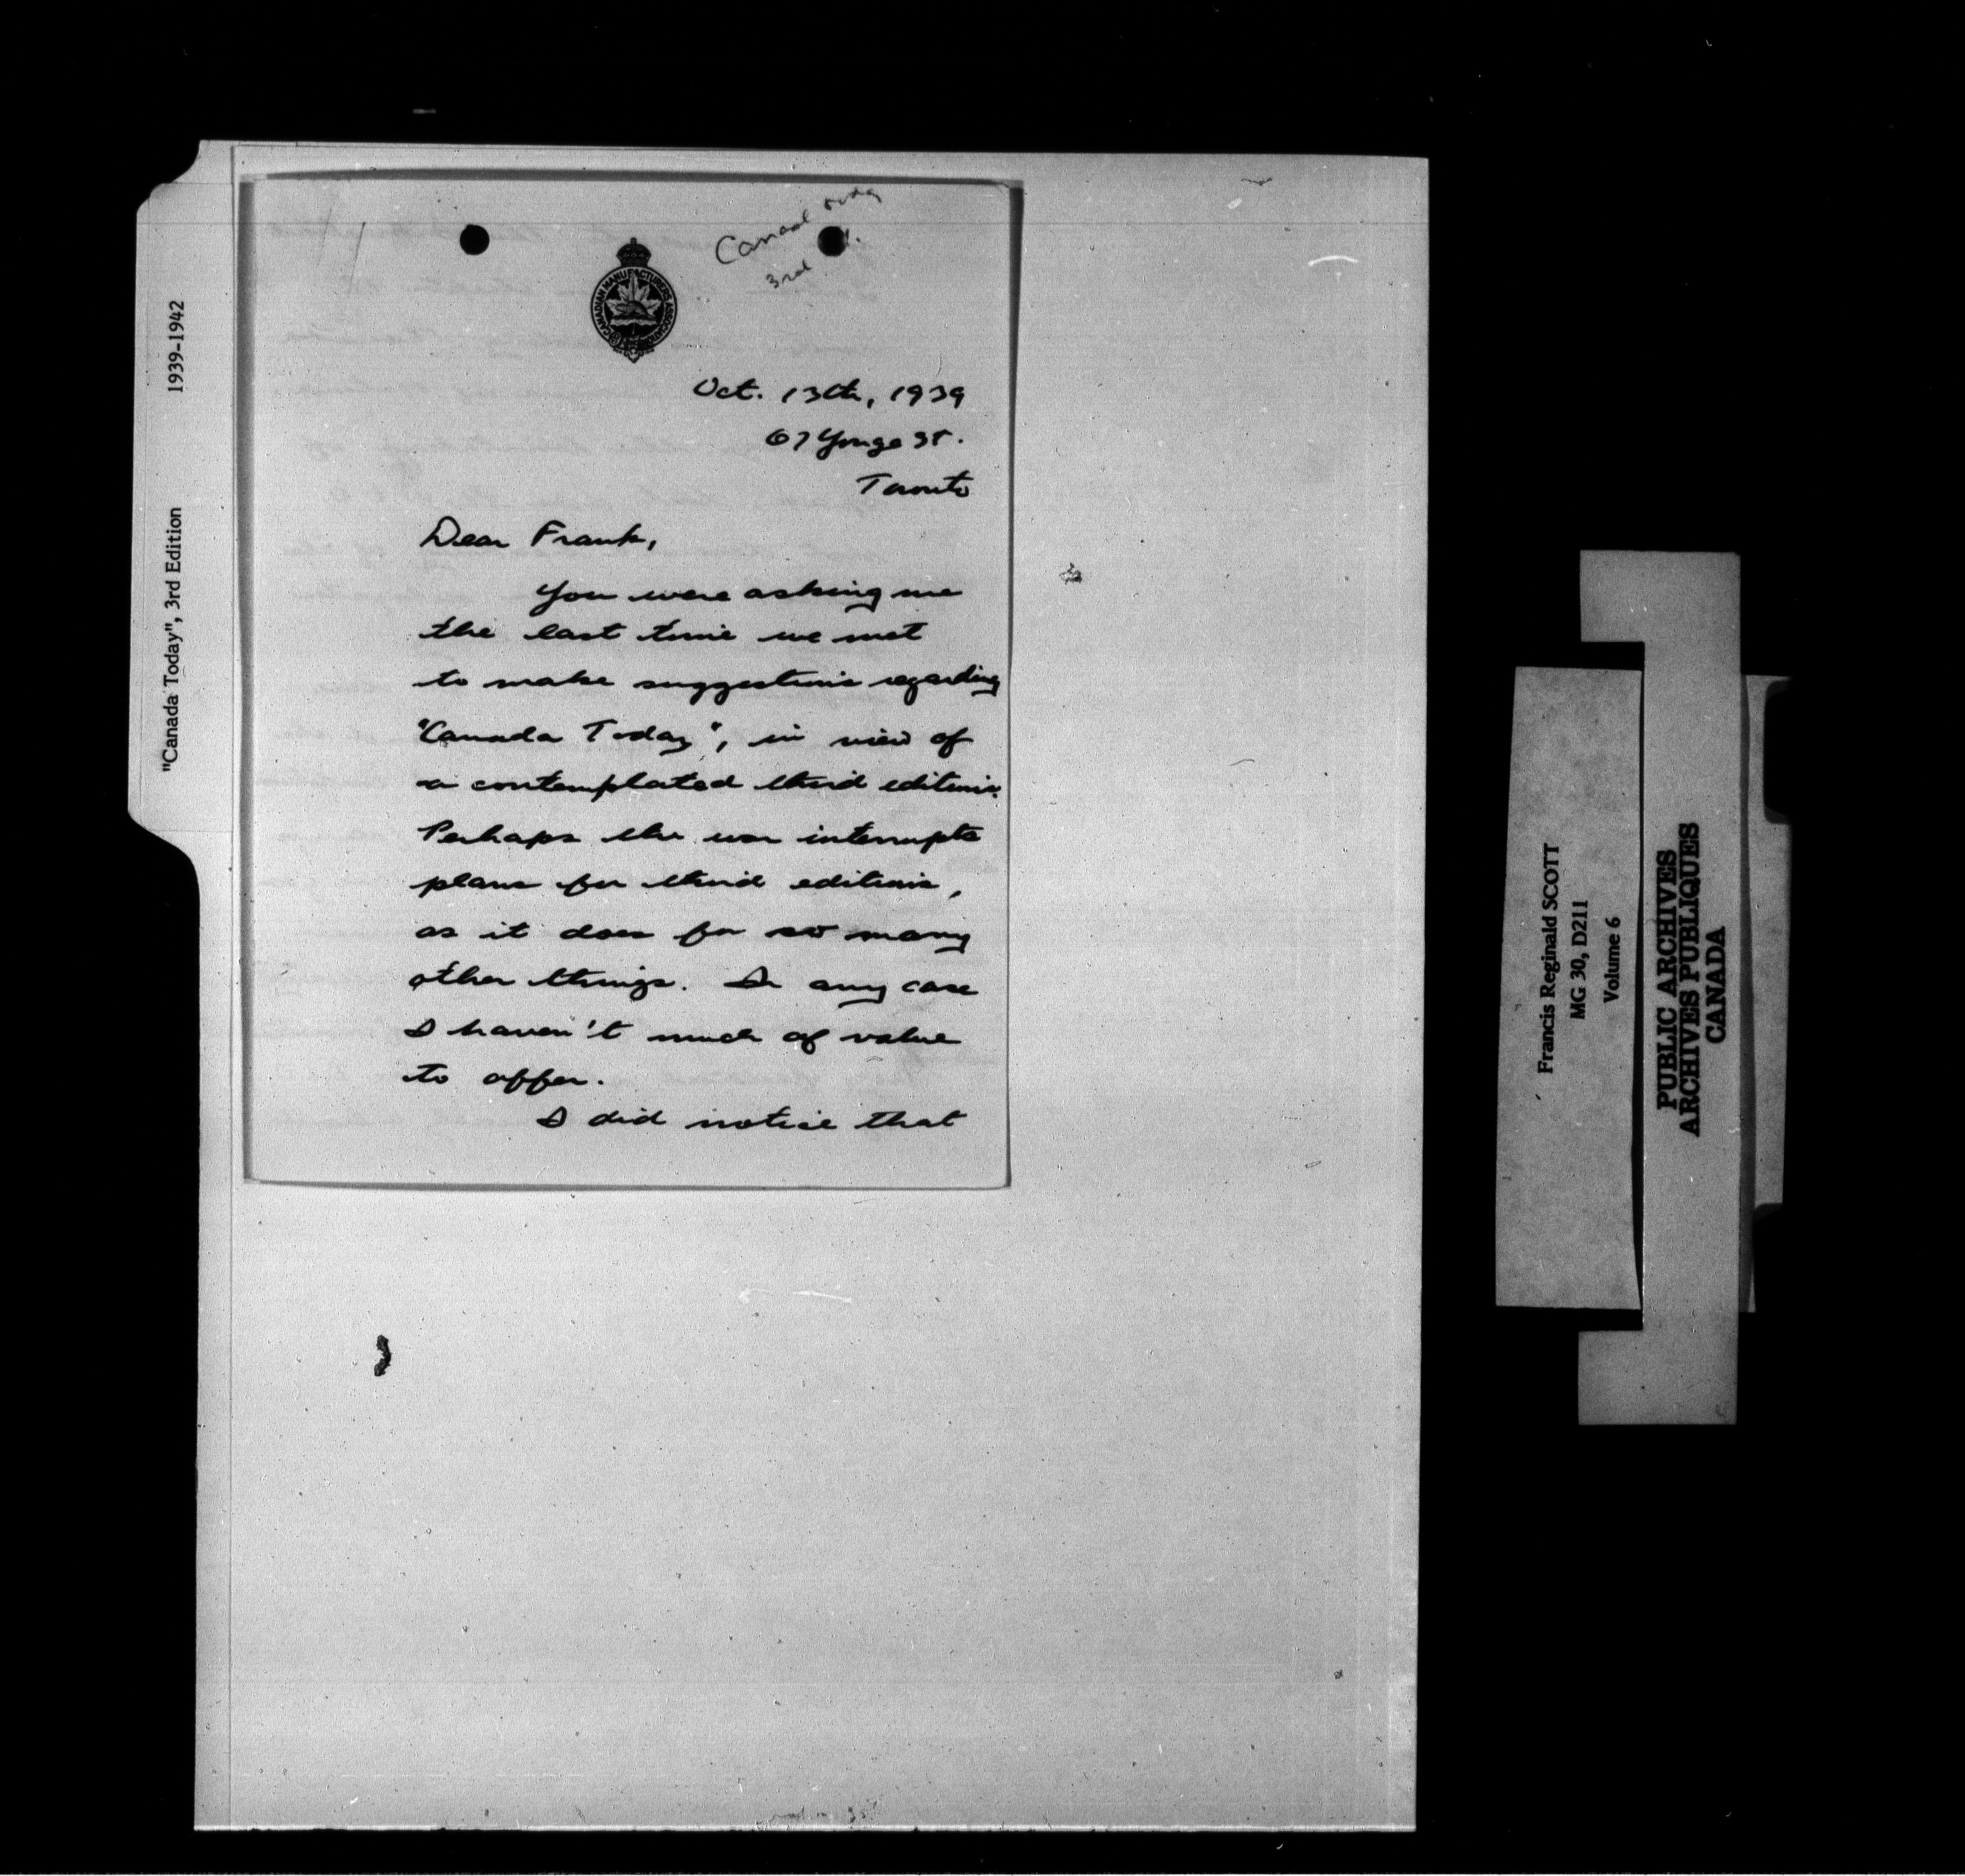 "Canada Today", 3rd Edition 1939-1942
Canada today
3rd
CANADIAN MANUFACTURERS ASSOCIATION
Oct. 13th, 1939
67 Yonge St.
Toronto
Dear Frank,
You were asking me
the last time we met
to make suggestions regarding
"Canada Today", in view of
a contemplated third edition.
Perhaps the war interrupts
plans for third editions,
as it does for so many
other things. In any case
I haven't much of value
to offer.
I did notice that
Francis Reginald SCOTT
MG 30, D211
Volume 6
PUBLIC ARCHIVES
ARCHIVES PUBLIQUES
CANADA